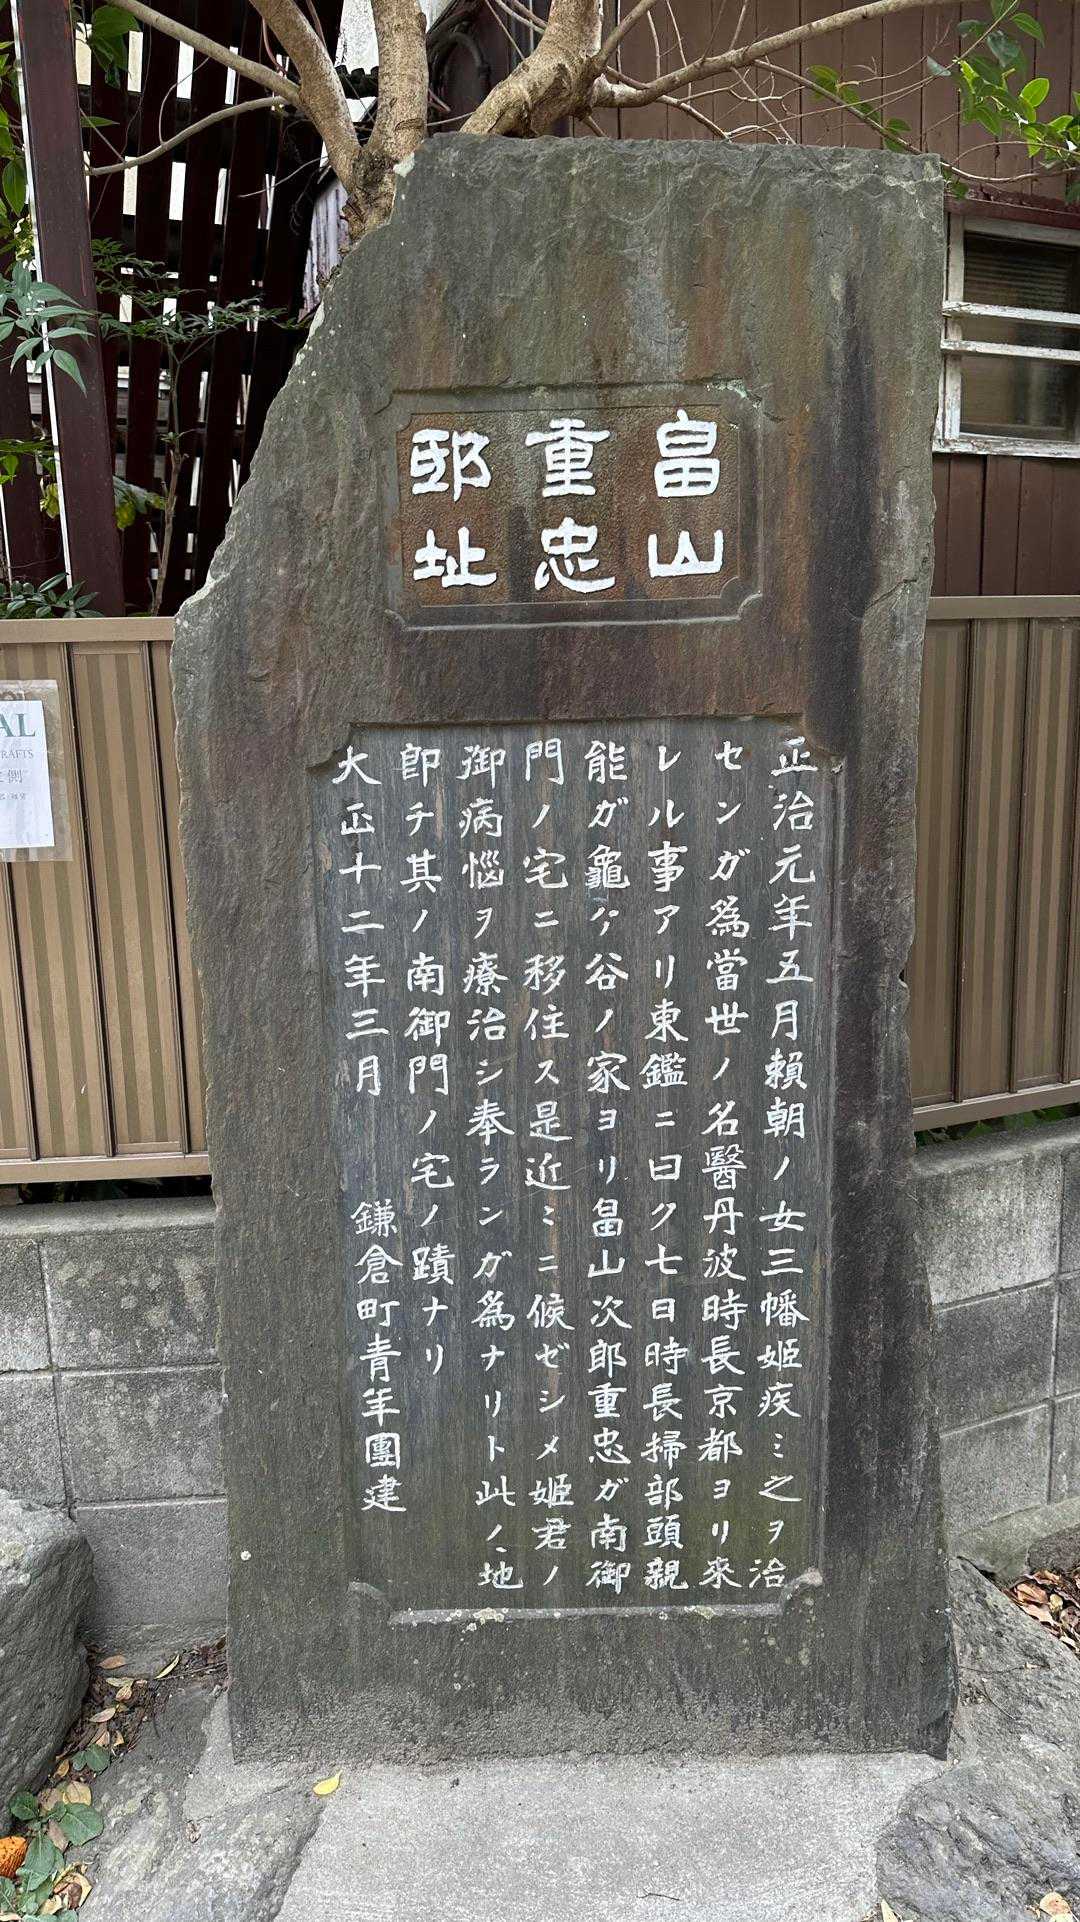 畠山
重忠
邸址
正治元年五月賴朝ノ女三幡姬疾ミ之ヲ治
センガ爲當世ノ名醫丹波時長京都ヨリ來
レル事アリ東鑑ニ曰ク七日時長掃部頭親
能ガ龜ヶ谷ノ家ヨリ畠山次郎重忠ガ南御
門ノ宅ニ移住ス是近ミニ候ゼシメ姬君ノ
御病惱ヲ療治シ奉ランガ爲ナリト此ノ地
卽チ其ノ南御門ノ宅ノ蹟ナリ
大正十二年三月 鎌倉町青年團建
AL
RAFTS
側